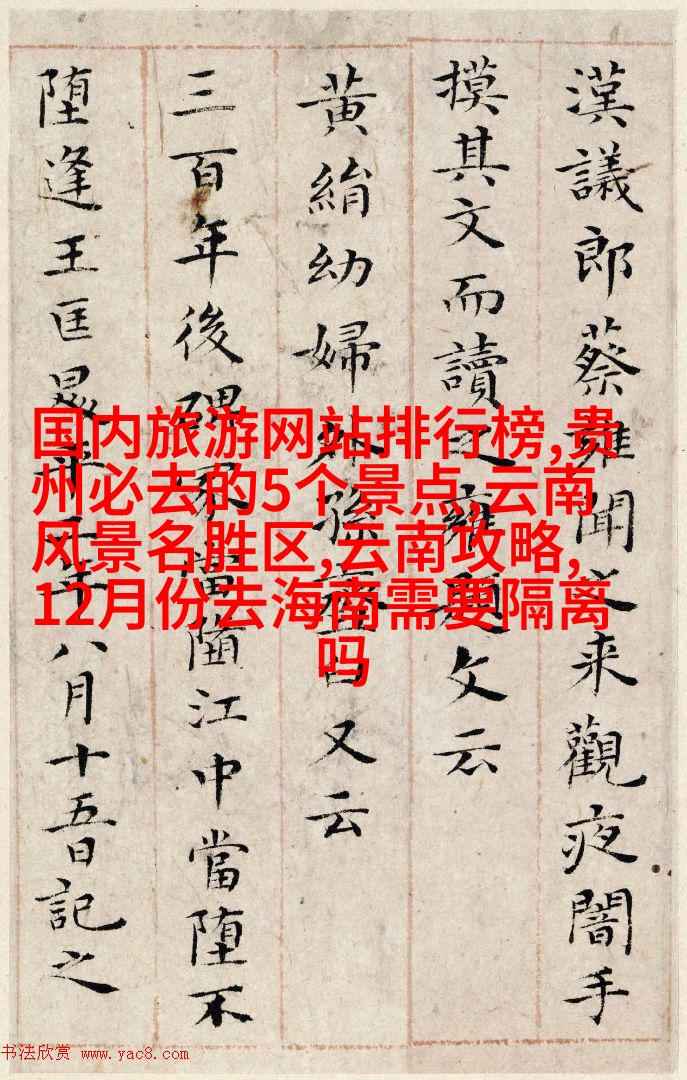 漢議郎蔡雍聞之来觀夜闇手
摸其文而讀之雍題文云
黃絹幼婦外孫又云
三百年後碑冢當江中當堕不
堕逢王匡年八月十五日記之
国内旅游网站排行榜,贵
州必去的5个景点,云南
风景名胜区,云南攻略,
12月份去海南需要隔离
吗
书法欣赏 www.yac8.com